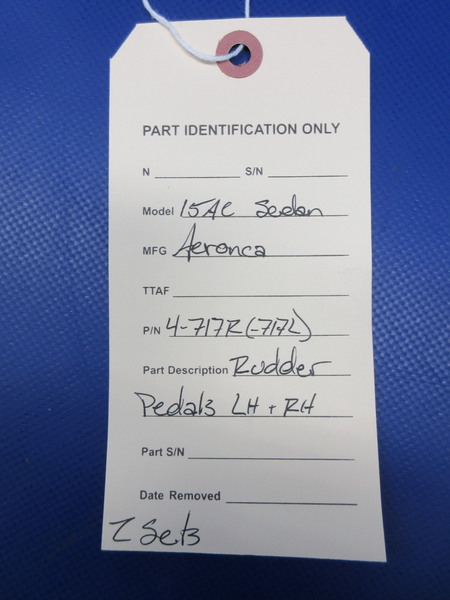 PART IDENTIFICATION ONLY
N S/N
Model 15AC Sedan
MFG Aeronca
TTAF
P/N 4-717R(-717L)
Part Description Rudder
Pedals LH + RH
Part S/N
Date Removed
2 Sets